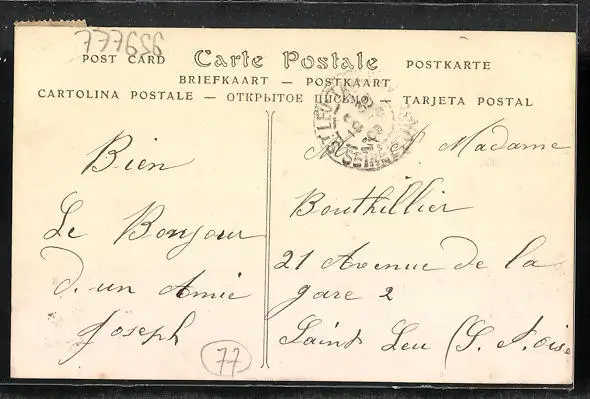 POST CARD Carte Postale POSTKARTE
BRIEFKAART — POSTKAART
CARTOLINA POSTALE — ОТКРЫТОЕ ПИСЬМО — TARJETA POSTAL
Bien
Le Bonjour
d'un Amie
Joseph
77
Madame
Bouthillier
21 Avenue de la
gare 2
Saint Leu (S. Oise